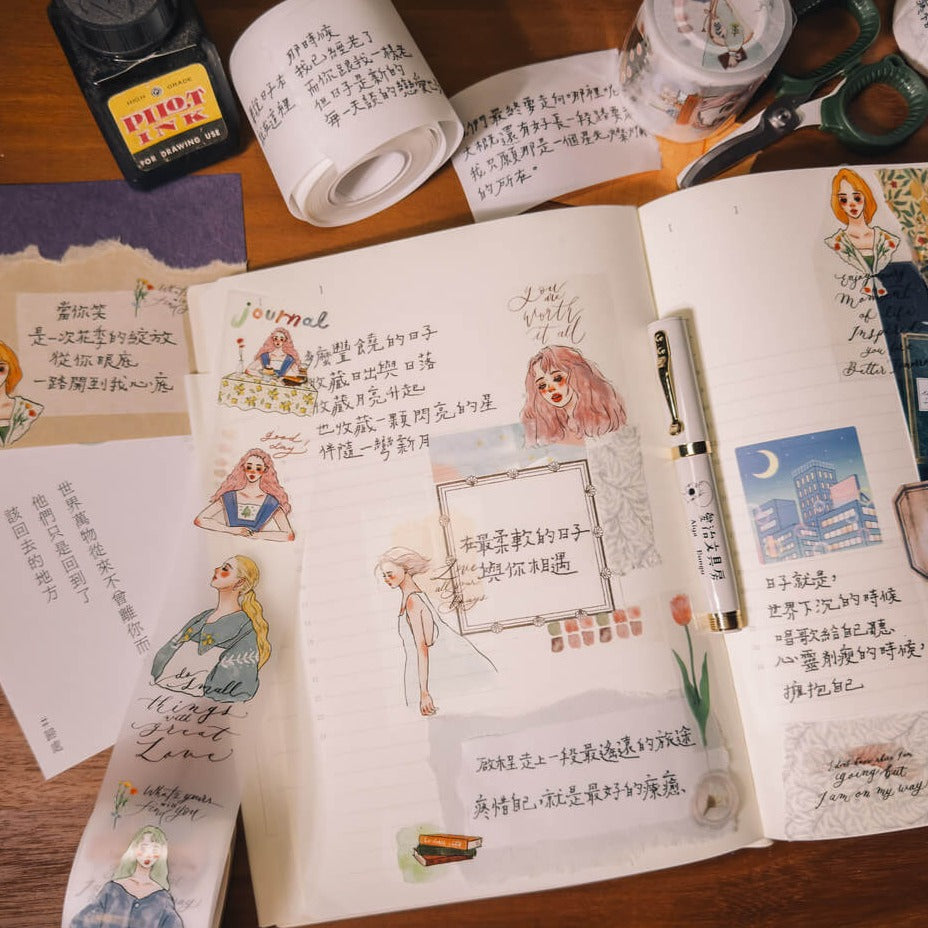 HIGH GRADE
PILOT
INK
FOR DRAWING USE
那時候
我已經老了
而你跟我一樣老
但日子是新的
每天談的戀愛也
大概還有好長一段路要走
我只願那是一個星光燦爛
的所在。
當你笑
是一次花季的綻放
從你眼底
一路開到我心底
世界萬物從來不曾離你而
他們只是回到了
該回去的地方
journal
多麼豐饒的日子
收藏日出與日落
收藏月亮升起
也收藏一顆閃亮的星
伴隨一彎新月
good
day
you
are
worth
it all
在最柔軟的日子
與你相遇
Love
always
do
small
things
with
great
Love
What's yours
will
find you
啟程走上一段最遙遠的旅途
疼惜自己，就是最好的療癒、
Enjoy every
Moment
of life
you
Better
日子就是，
世界下沉的時候
唱歌給自己聽
心靈削瘦的時候，
擁抱自己
I dont know where I'm
going but
I am on my way